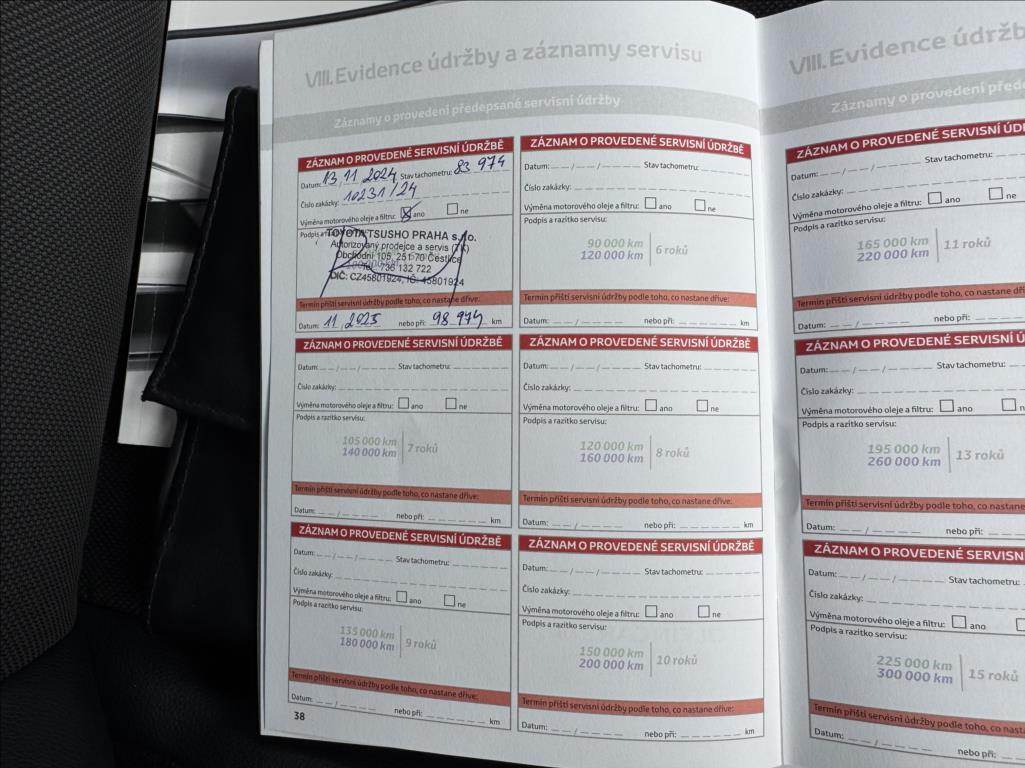 VIII. Evidence údržby a záznamy servisu
Záznamy o provedení předepsané servisní údržby
ZÁZNAM O PROVEDENÉ SERVISNÍ ÚDRŽBĚ
Datum: 13 / 11 / 2024 Stav tachometru: 83 974
Číslo zakázky: 10231/24
Výměna motorového oleje a filtru: ☒ ano ☐ ne
Podpis a
TOYOTA TSUSHO PRAHA s.r.o.
Autorizovaný prodejce a servis
Obchodní 105, 251 70 Čestlice
736 132 722
DIČ: CZ45801924, IČ: 45801924
Termín příští servisní údržby podle toho, co nastane dříve:
Datum: 11 2025 nebo při: 98 974 km
ZÁZNAM O PROVEDENÉ SERVISNÍ ÚDRŽBĚ
Datum: __ / __ / ____ Stav tachometru:
Číslo zakázky:
Výměna motorového oleje a filtru: ☐ ano ☐ ne
Podpis a razítko servisu:
90 000 km
120 000 km
6 roků
Termín příští servisní údržby podle toho, co nastane dříve:
Datum: __ / __ / ____ nebo při: ______ km
ZÁZNAM O PROVEDENÉ SERVISNÍ ÚDRŽBĚ
Datum: __ / __ / ____ Stav tachometru:
Číslo zakázky:
Výměna motorového oleje a filtru: ☐ ano ☐ ne
Podpis a razítko servisu:
105 000 km
140 000 km
7 roků
Termín příští servisní údržby podle toho, co nastane dříve:
Datum: __ / __ / ____ nebo při: ______ km
ZÁZNAM O PROVEDENÉ SERVISNÍ ÚDRŽBĚ
Datum: __ / __ / ____ Stav tachometru:
Číslo zakázky:
Výměna motorového oleje a filtru: ☐ ano ☐ ne
Podpis a razítko servisu:
120 000 km
160 000 km
8 roků
Termín příští servisní údržby podle toho, co nastane dříve:
Datum: __ / __ / ____ nebo při: ______ km
ZÁZNAM O PROVEDENÉ SERVISNÍ ÚDRŽBĚ
Datum: __ / __ / ____ Stav tachometru:
Číslo zakázky:
Výměna motorového oleje a filtru: ☐ ano ☐ ne
Podpis a razítko servisu:
135 000 km
180 000 km
9 roků
Termín příští servisní údržby podle toho, co nastane dříve:
Datum: __ / __ / ____ nebo při: ______ km
ZÁZNAM O PROVEDENÉ SERVISNÍ ÚDRŽBĚ
Datum: __ / __ / ____ Stav tachometru:
Číslo zakázky:
Výměna motorového oleje a filtru: ☐ ano ☐ ne
Podpis a razítko servisu:
150 000 km
200 000 km
10 roků
Termín příští servisní údržby podle toho, co nastane dříve:
Datum: __ / __ / ____ nebo při: ______ km
38
VIII. Evidence údržb
Záznamy o provedení před
ZÁZNAM O PROVEDENÉ SERVISNÍ Ú
Datum: __ / __ / ____ Stav tachometru:
Číslo zakázky:
Výměna motorového oleje a filtru: ☐ ano ☐ ne
Podpis a razítko servisu:
165 000 km
220 000 km
11 roků
Termín příští servisní údržby podle toho, co nastane dří
Datum: __ / __ / ____ nebo při:
ZÁZNAM O PROVEDENÉ SERVISNÍ Ú
Datum: __ / __ / ____ Stav tachometru:
Číslo zakázky:
Výměna motorového oleje a filtru: ☐ ano ☐ n
Podpis a razítko servisu:
195 000 km
260 000 km
13 roků
Termín příští servisní údržby podle toho, co nasta
Datum: __ / __ / ____ nebo při:
ZÁZNAM O PROVEDENÉ SERVISN
Datum: __ / __ / ____ Stav tachometru:
Číslo zakázky:
Výměna motorového oleje a filtru: ☐ ano
Podpis a razítko servisu:
225 000 km
300 000 km
15 roků
Termín příští servisní údržby podle toho, co nast
Datum: __ / __ / ____ nebo při: